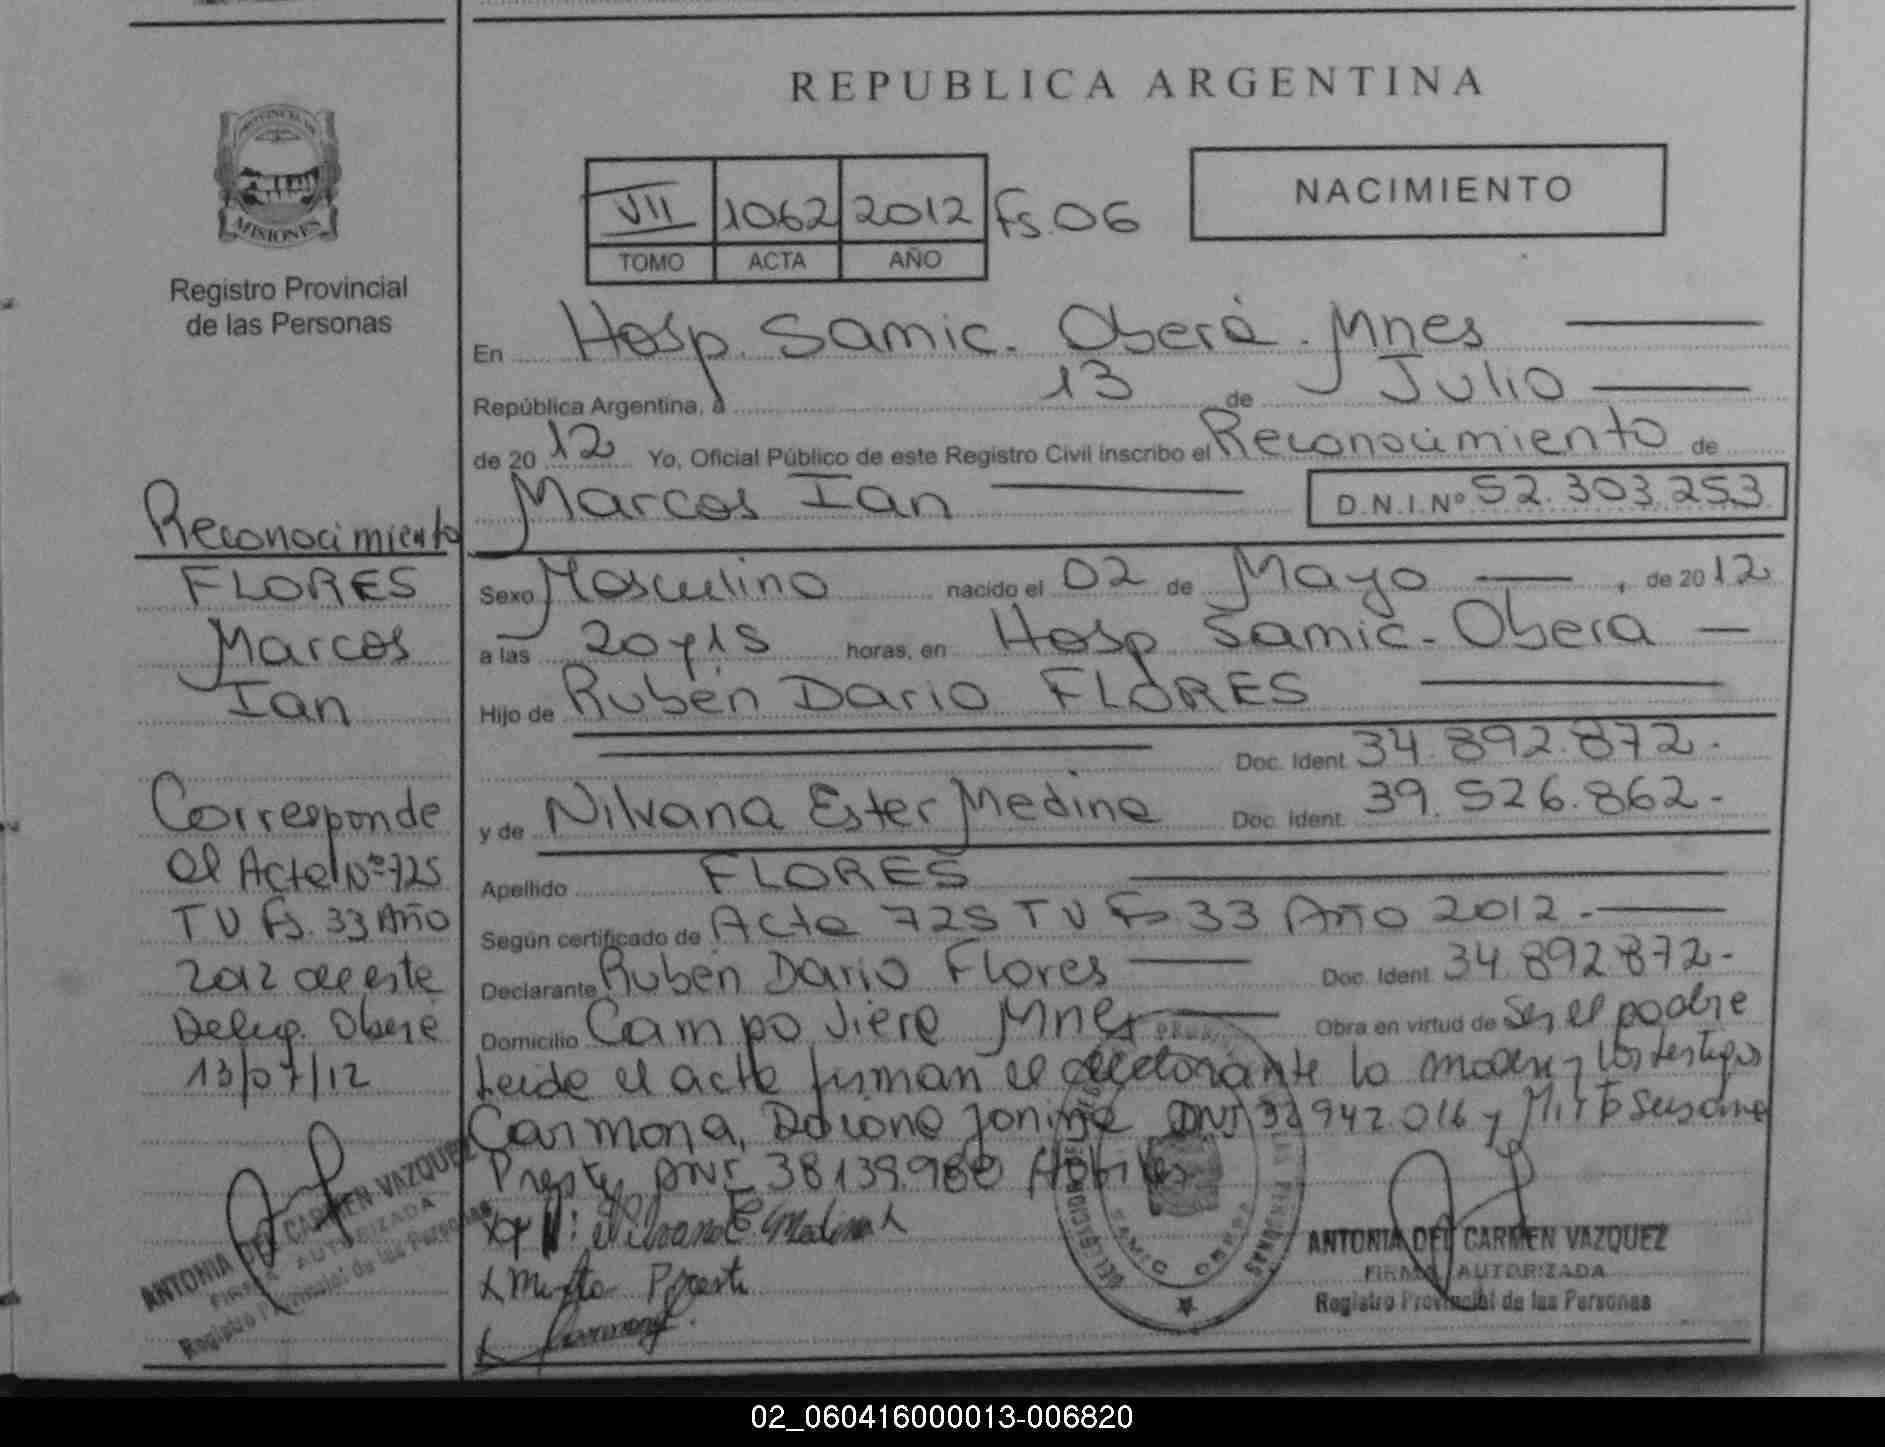 REPUBLICA ARGENTINA
PROVINCIA DE
MISIONES
Registro Provincial
de las Personas
VII 1062 2012 Fs. 06
TOMO ACTA AÑO
NACIMIENTO
En Hosp. Samic. Oberá. Mnes
República Argentina, a 13 de Julio
de 2012 Yo, Oficial Público de este Registro Civil inscribo el Reconocimiento de
Marcos Ian D.N.I.Nº 52.303.253
Sexo Masculino nacido el 02 de Mayo, de 2012
a las 20 y 15 horas, en Hosp Samic - Obera
Hijo de Rubén Dario FLORES
Doc. Ident. 34.892.872.-
y de Nilvana Ester Medina Doc. Ident. 39.526.862-
Apellido FLORES
Según certificado de Acta 725 T V Fs 33 Año 2012.-
Declarante Rubén Dario Flores Doc. Ident. 34 892 872-
Domicilio Campo Viera Mnes Obra en virtud de Ser el padre
Leida el acta firman el declarante la madre y los testigos
Carmona, Daiana Janina DNI 32 942.016 y Mirta Susana
Presty DNI 38139.980 Habiles
Nilvana E. Medina
Mirta Presti
ANTONIA DEL CARMEN VAZQUEZ
FIRMA AUTORIZADA
Registro Provincial de las Personas
Reconocimiento
FLORES
Marcos
Ian
Corresponde
al Acta Nº 725
T V Fs. 33 Año
2012 de este
Deleg. Oberá
13/07/12
ANTONIA DEL CARMEN VAZQUEZ
FIRMA AUTORIZADA
Registro Provincial de las Personas
02_060416000013-006820